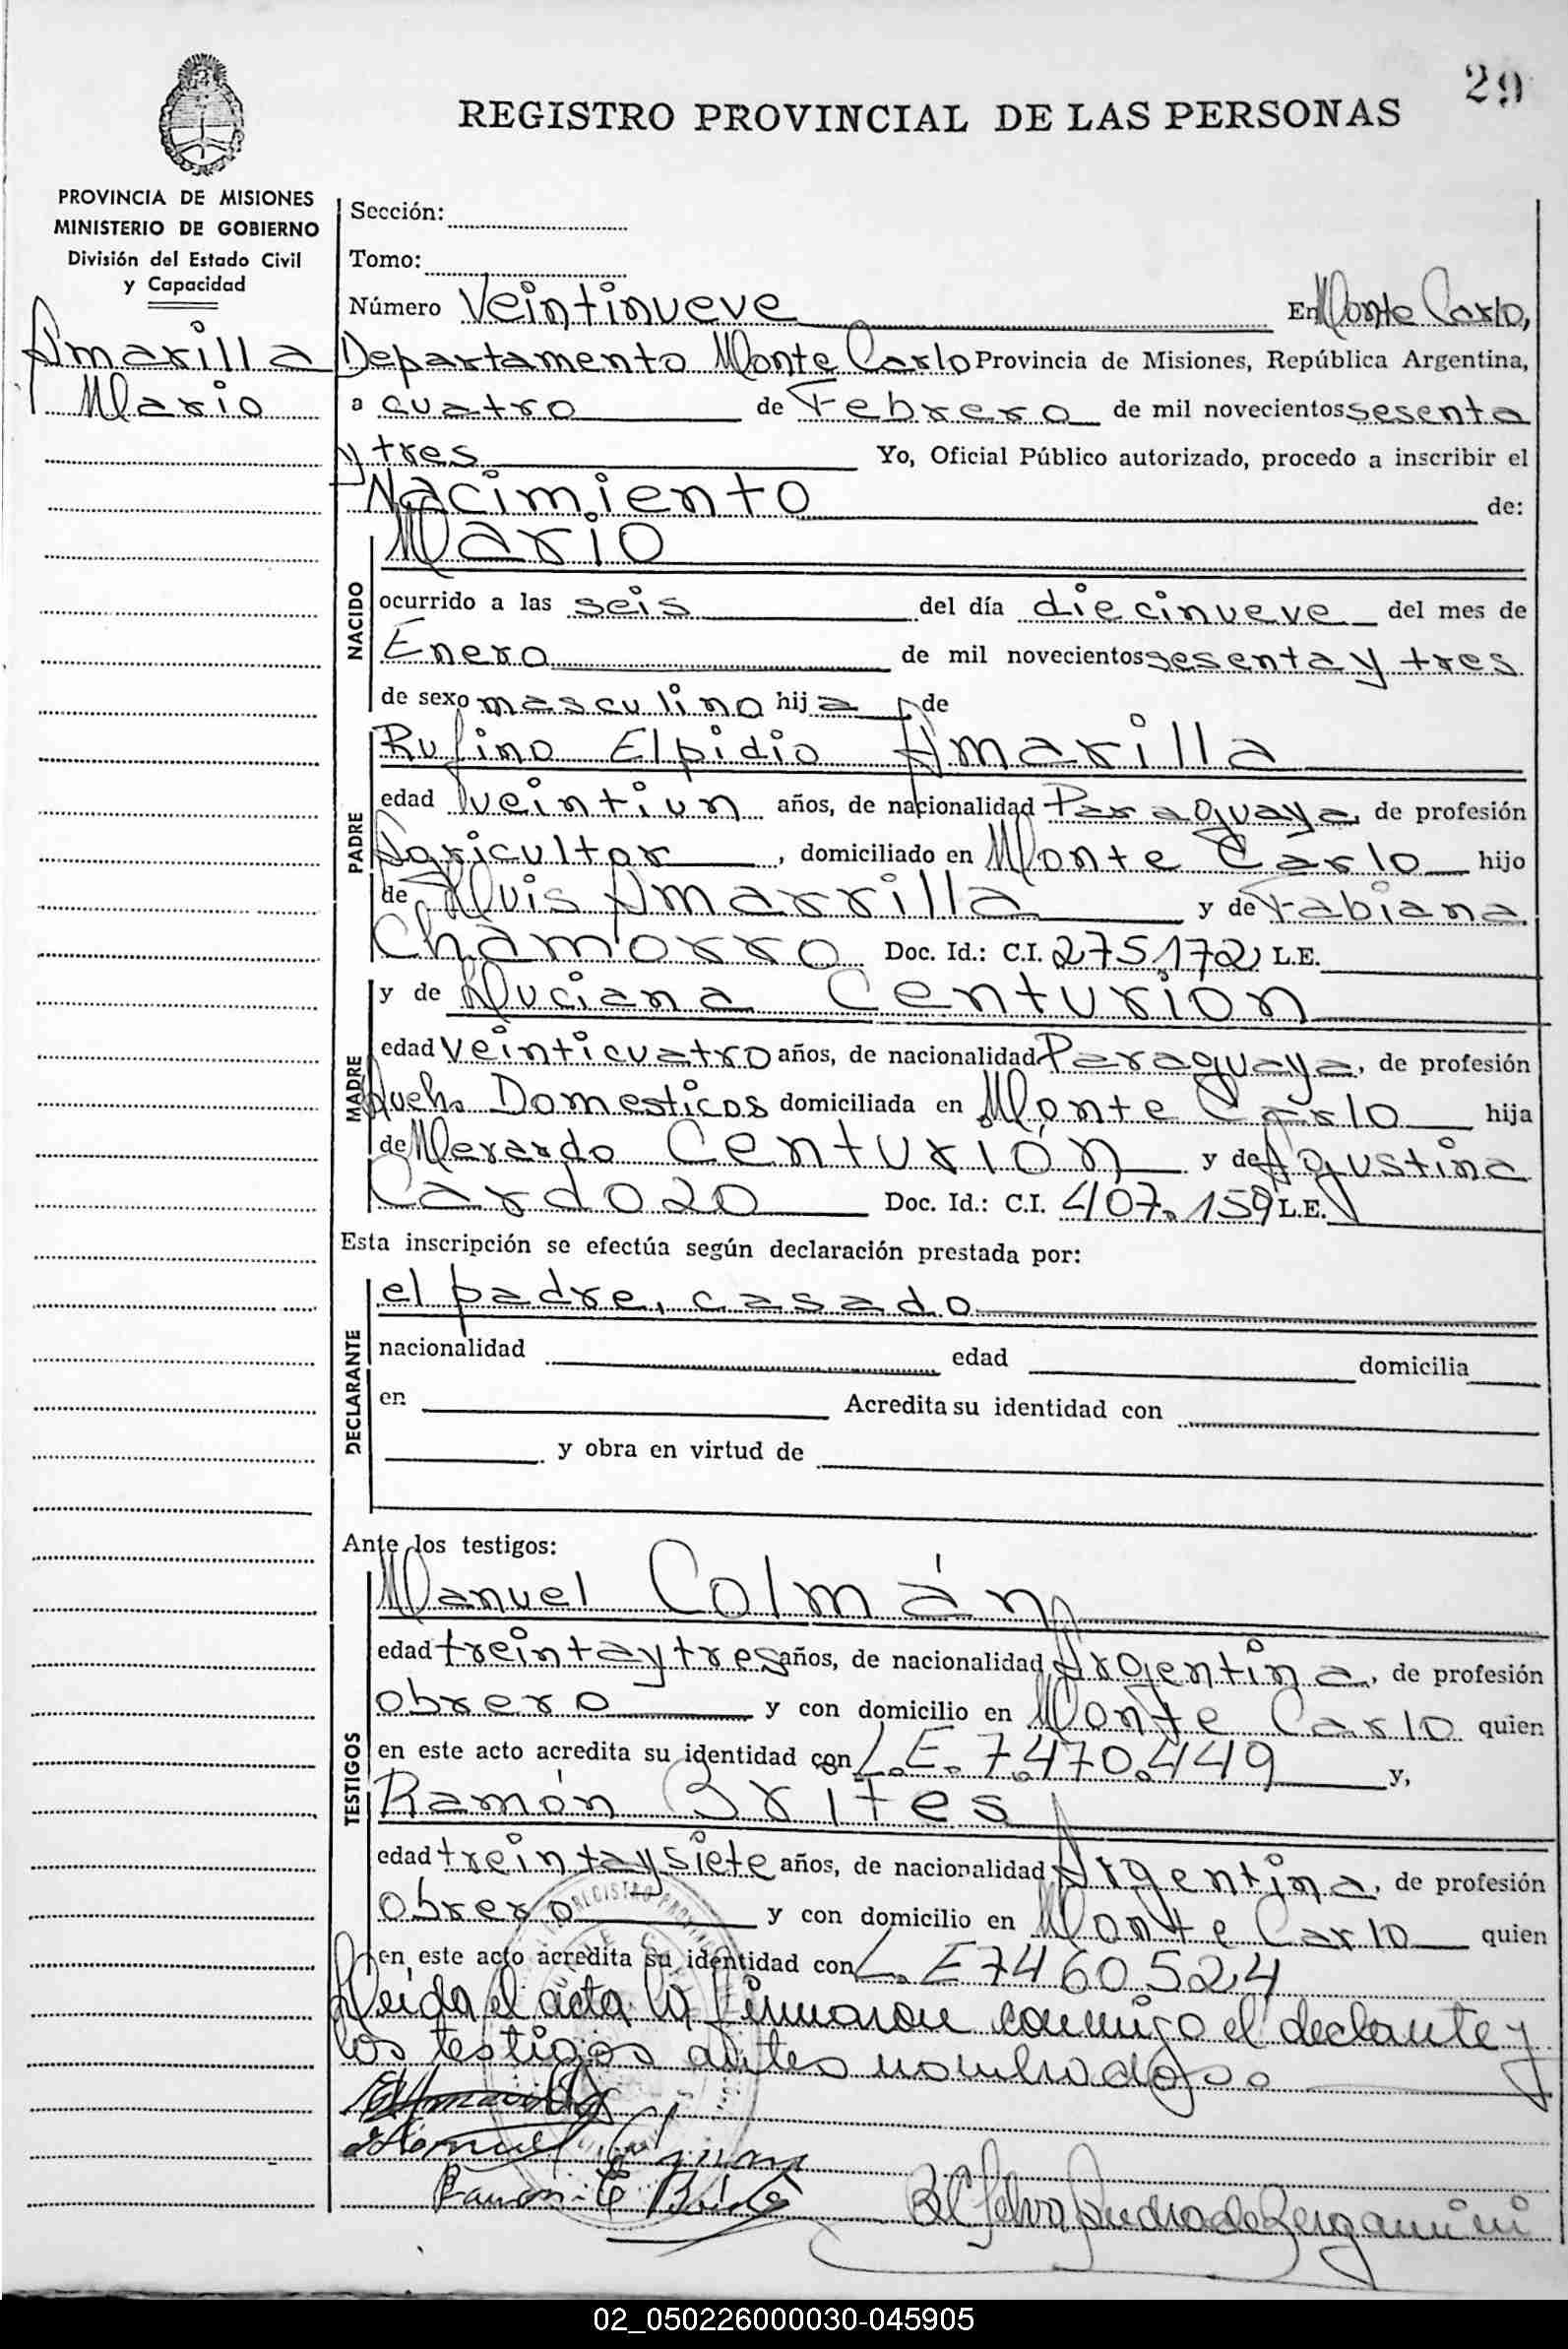 29
REGISTRO PROVINCIAL DE LAS PERSONAS
PROVINCIA DE MISIONES
MINISTERIO DE GOBIERNO
División del Estado Civil
y Capacidad
Amarilla
Mario
Sección:
Tomo:
Número Veintinueve En Monte Carlo,
Departamento Monte Carlo Provincia de Misiones, República Argentina,
a cuatro de Febrero de mil novecientos sesenta
y tres Yo, Oficial Público autorizado, procedo a inscribir el
Nacimiento de:
Mario
NACIDO
ocurrido a las seis del día diecinueve del mes de
Enero de mil novecientos sesenta y tres
de sexo masculino hija de
PADRE
Rufino Elpidio Amarilla
edad veintiun años, de nacionalidad Paraguaya, de profesión
Agricultor, domiciliado en Monte Carlo hijo
de Luis Amarrilla y de Fabiana
Chamorro Doc. Id.: C.I. 275.172 L.E.
MADRE
y de Luciana Centurion
edad veinticuatro años, de nacionalidad Paraguaya, de profesión
Queh. Domesticos domiciliada en Monte Carlo hija
de Merardo Centurión y de Agustina
Cardozo Doc. Id.: C.I. 407.159 L.E.
Esta inscripción se efectúa según declaración prestada por:
DECLARANTE
el padre, casado
nacionalidad edad domicilia
en Acredita su identidad con
y obra en virtud de
Ante los testigos:
TESTIGOS
Manuel Colmán
edad treinta y tres años, de nacionalidad Argentina, de profesión
obrero y con domicilio en Monte Carlo quien
en este acto acredita su identidad con L.E. 7.470.449 y,
Ramón Brites
edad treinta y siete años, de nacionalidad Argentina, de profesión
obrero y con domicilio en Monte Carlo quien
en este acto acredita su identidad con L.E 7460524
Leída el acta la firmaron conmigo el declante y
los testigos antes nombrados.
02_050226000030-045905